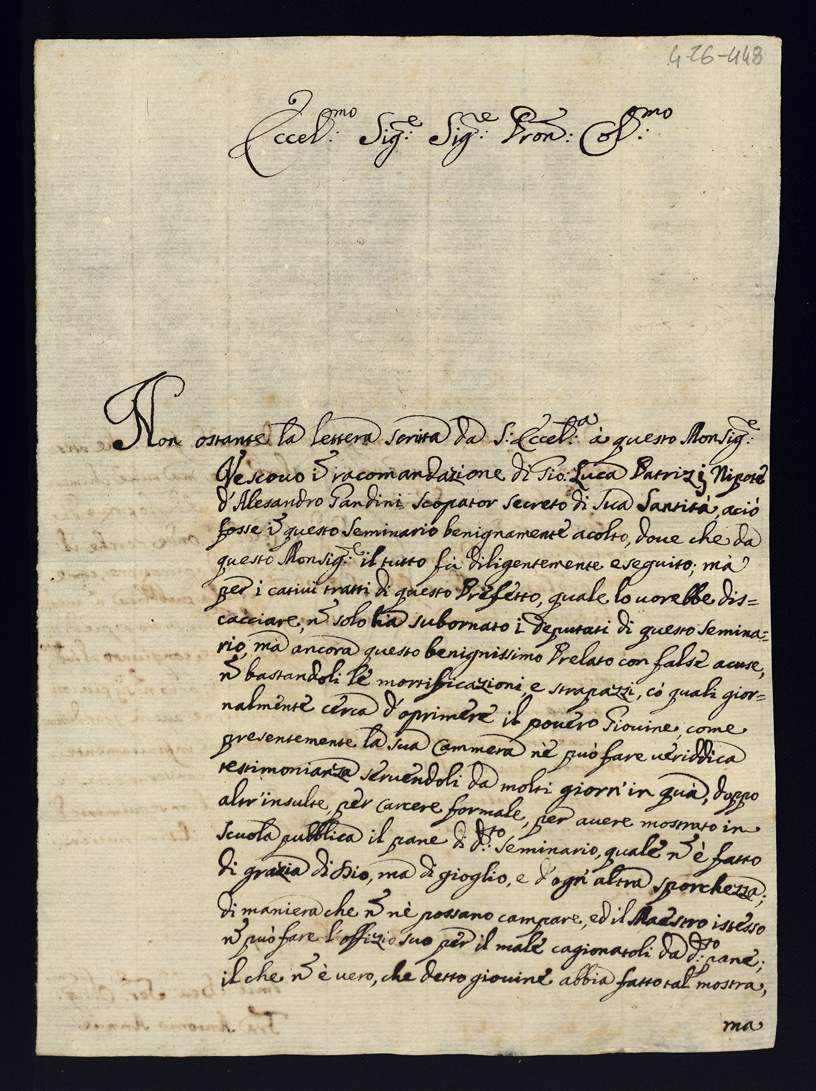 4-26-448
Eccel:mo Sig:e Sig:re Pron: Col:mo
Non ostante la lettera scritta da S: Eccel:a à questo Monsig:e
Vescovo ĩ racomandazione di Gio: Luca Patrizij Nipote
d'Alesandro Gandini scopator secreto di Sua Santità, aciò
fosse ĩ questo Seminario benignamente acolto, doue che da
questo Monsig:e il tutto fù diligentemente eseguito; mà
per i catiui tratti di questo Prefetto, quale lo uorebbe dis=
cacciare, ñ solo hà subornato i deputati di questo Semina=
rio, mà ancora questo benignissimo Prelato con false acuse,
ñ bastandoli le mortificazioni, e strapazzi, cò quali gior=
nalmente cerca d'oprimere il pouero Giouine, come
presentemente la sua Cammera nè può fare ueriddica
testimonianza seruendoli da molti giorn' in quà, doppo
altr'insulte, per carcere formale, per auere mostrato in
scuola pubblica il pane di d:to Seminario, quale ñ è fatto
di grazia di Dio, ma di gioglio, e d'ogn'altra sporchezza;
di maniera che ñ nè possano campare, ed il Maestro istesso
ñ può fare l'offizio suo per il male cagionatoli da d:to pane;
il che ñ è uero, che detto giouine abbia fatto tal mostra,
ma